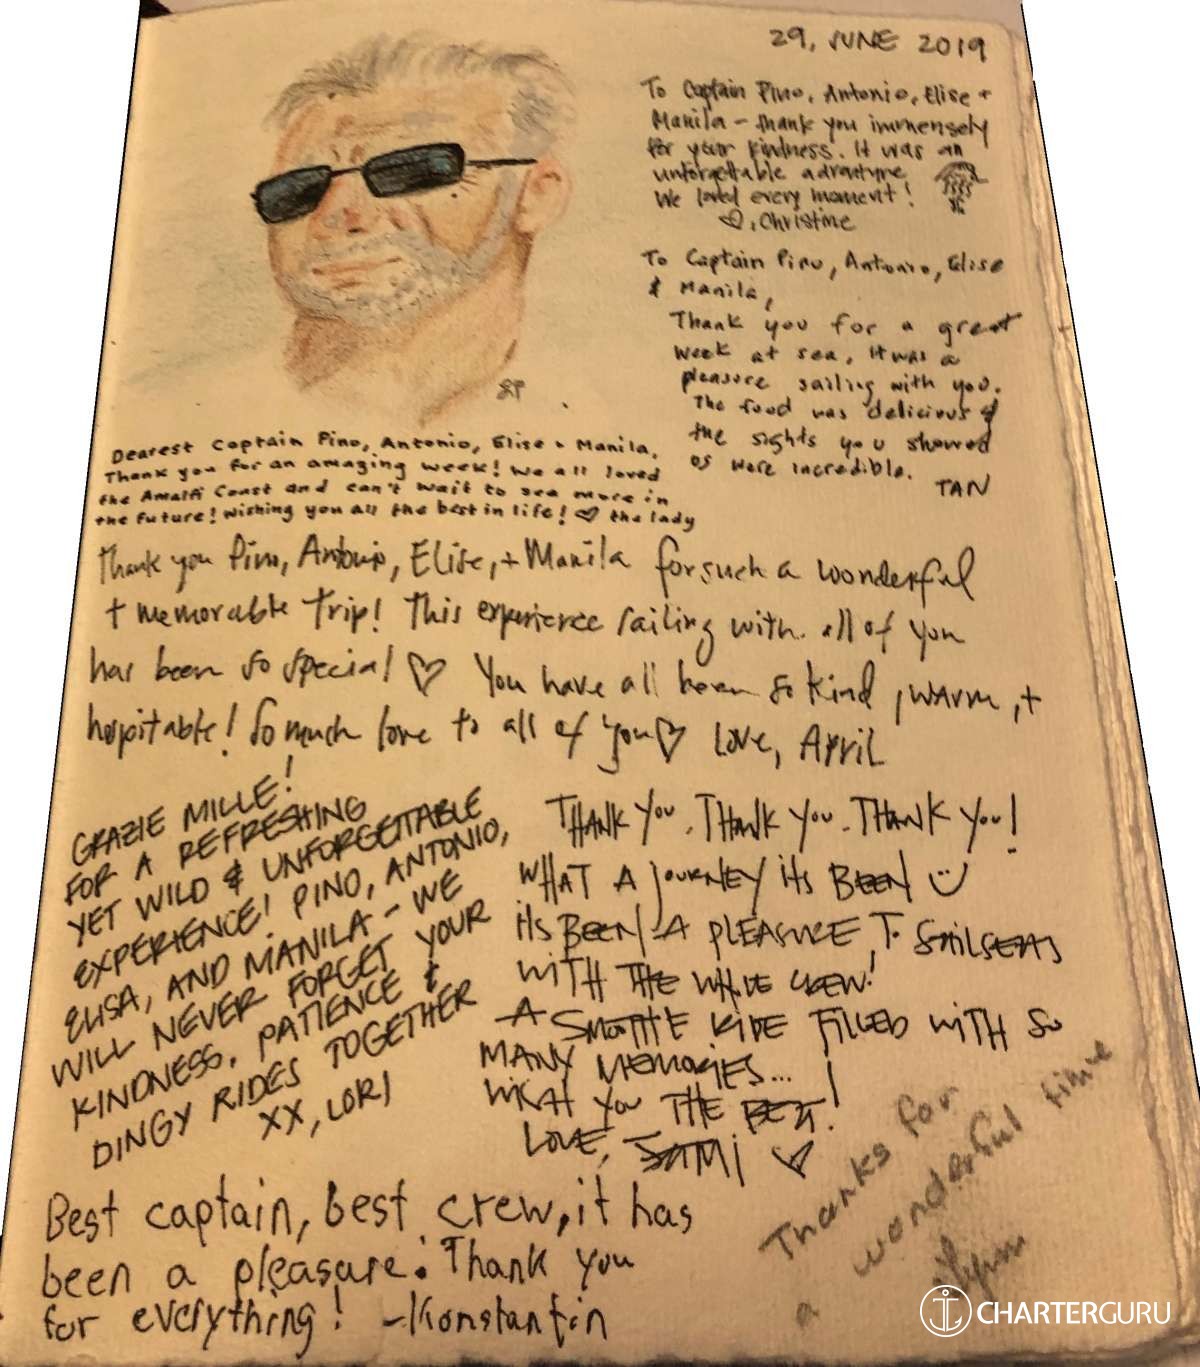 29, JUNE 2019
To Captain Pino, Antonio, Elise +
Manila – thank you immensely
for your kindness. It was an
unforgettable adventure
We loved every moment!
♡, Christine
To Captain Pino, Antonio, Elise
& Manila,
Thank you for a great
week at sea, it was a
pleasure sailing with you.
The food was delicious &
the sights you showed
us were incredible.
TAN
Dearest Captain Pino, Antonio, Elise + Manila,
Thank you for an amazing week! We all loved
the Amalfi Coast and can't wait to see more in
the future! Wishing you all the best in life! ♡ the lady
Thank you Pino, Antonio, Elise, + Manila for such a wonderful
+ memorable trip! This experience sailing with all of you
has been so special ♡ You have all been so kind, warm, +
hospitable! So much love to all of you ♡ Love, April
GRAZIE MILLE!
FOR A REFRESHING
YET WILD & UNFORGETTABLE
EXPERIENCE! PINO, ANTONIO,
ELISA, AND MANILA – WE
WILL NEVER FORGET YOUR
KINDNESS, PATIENCE &
DINGY RIDES TOGETHER
XX, LORI
THANK YOU. THANK YOU. THANK YOU!
WHAT A JOURNEY ITS BEEN
ITS BEEN A PLEASURE TO
WITH THE CREW!
A SMOOTHE RIDE FILLED WITH SO
MANY MEMORIES...
YOU THE BEST!
LOVE, SAMI ♡
Best captain, best crew, it has
been a pleasure. Thank you
for everything! – Konstantin
Thanks for
a wonderful time
CHARTERGURU